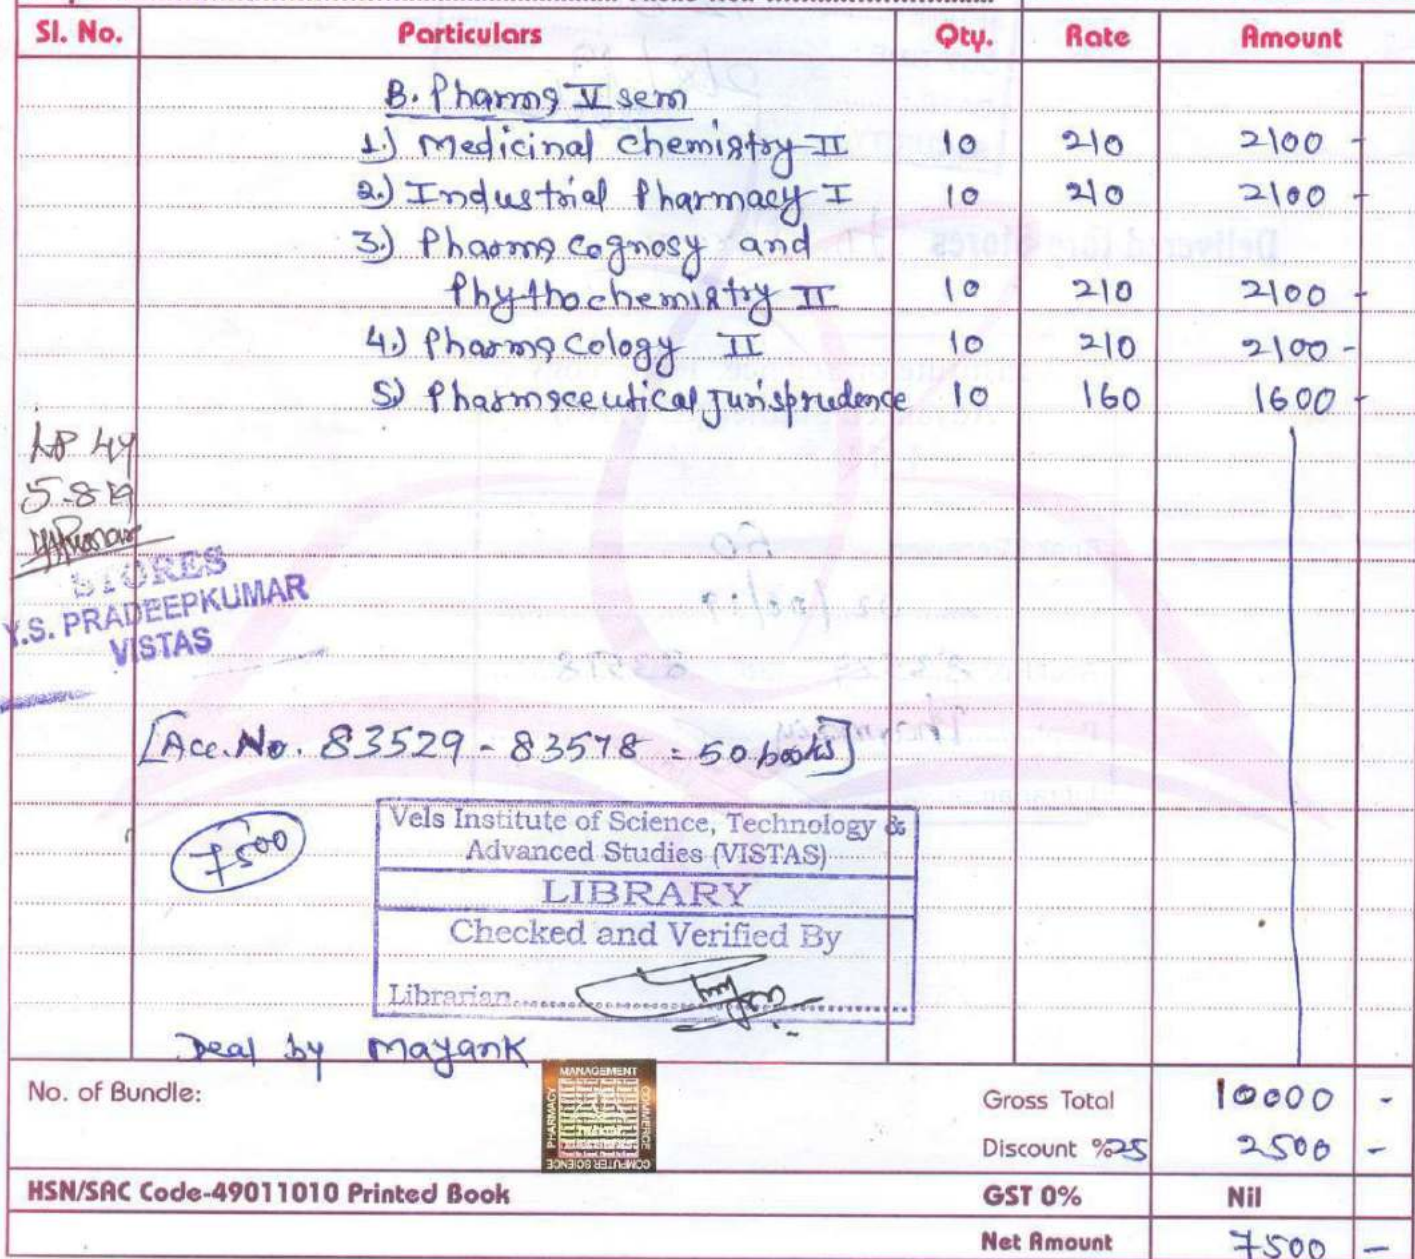 Sl. No. Particulars Qty. Rate Amount
B. Pharma V sem
1.) Medicinal chemistry II 10 210 2100 -
2.) Industrial Pharmacy I 10 210 2100 -
3.) Pharma cognosy and
Phythochemistry II 10 210 2100 -
4.) Pharmacology II 10 210 2100 -
5) Pharmaceutical Jurisprudence 10 160 1600 -
5.8.19
STORES
Y.S. PRADEEPKUMAR
VISTAS
[Acc. No. 83529 - 83578 = 50 books]
7500
Vels Institute of Science, Technology &
Advanced Studies (VISTAS)
LIBRARY
Checked and Verified By
Librarian
Deal by Mayank
MANAGEMENT
COMMERCE
COMPUTER SCIENCE
PHARMACY
No. of Bundle: Gross Total 10000 -
Discount %25 2500 -
HSN/SAC Code-49011010 Printed Book GST 0% Nil
Net Amount 7500 -